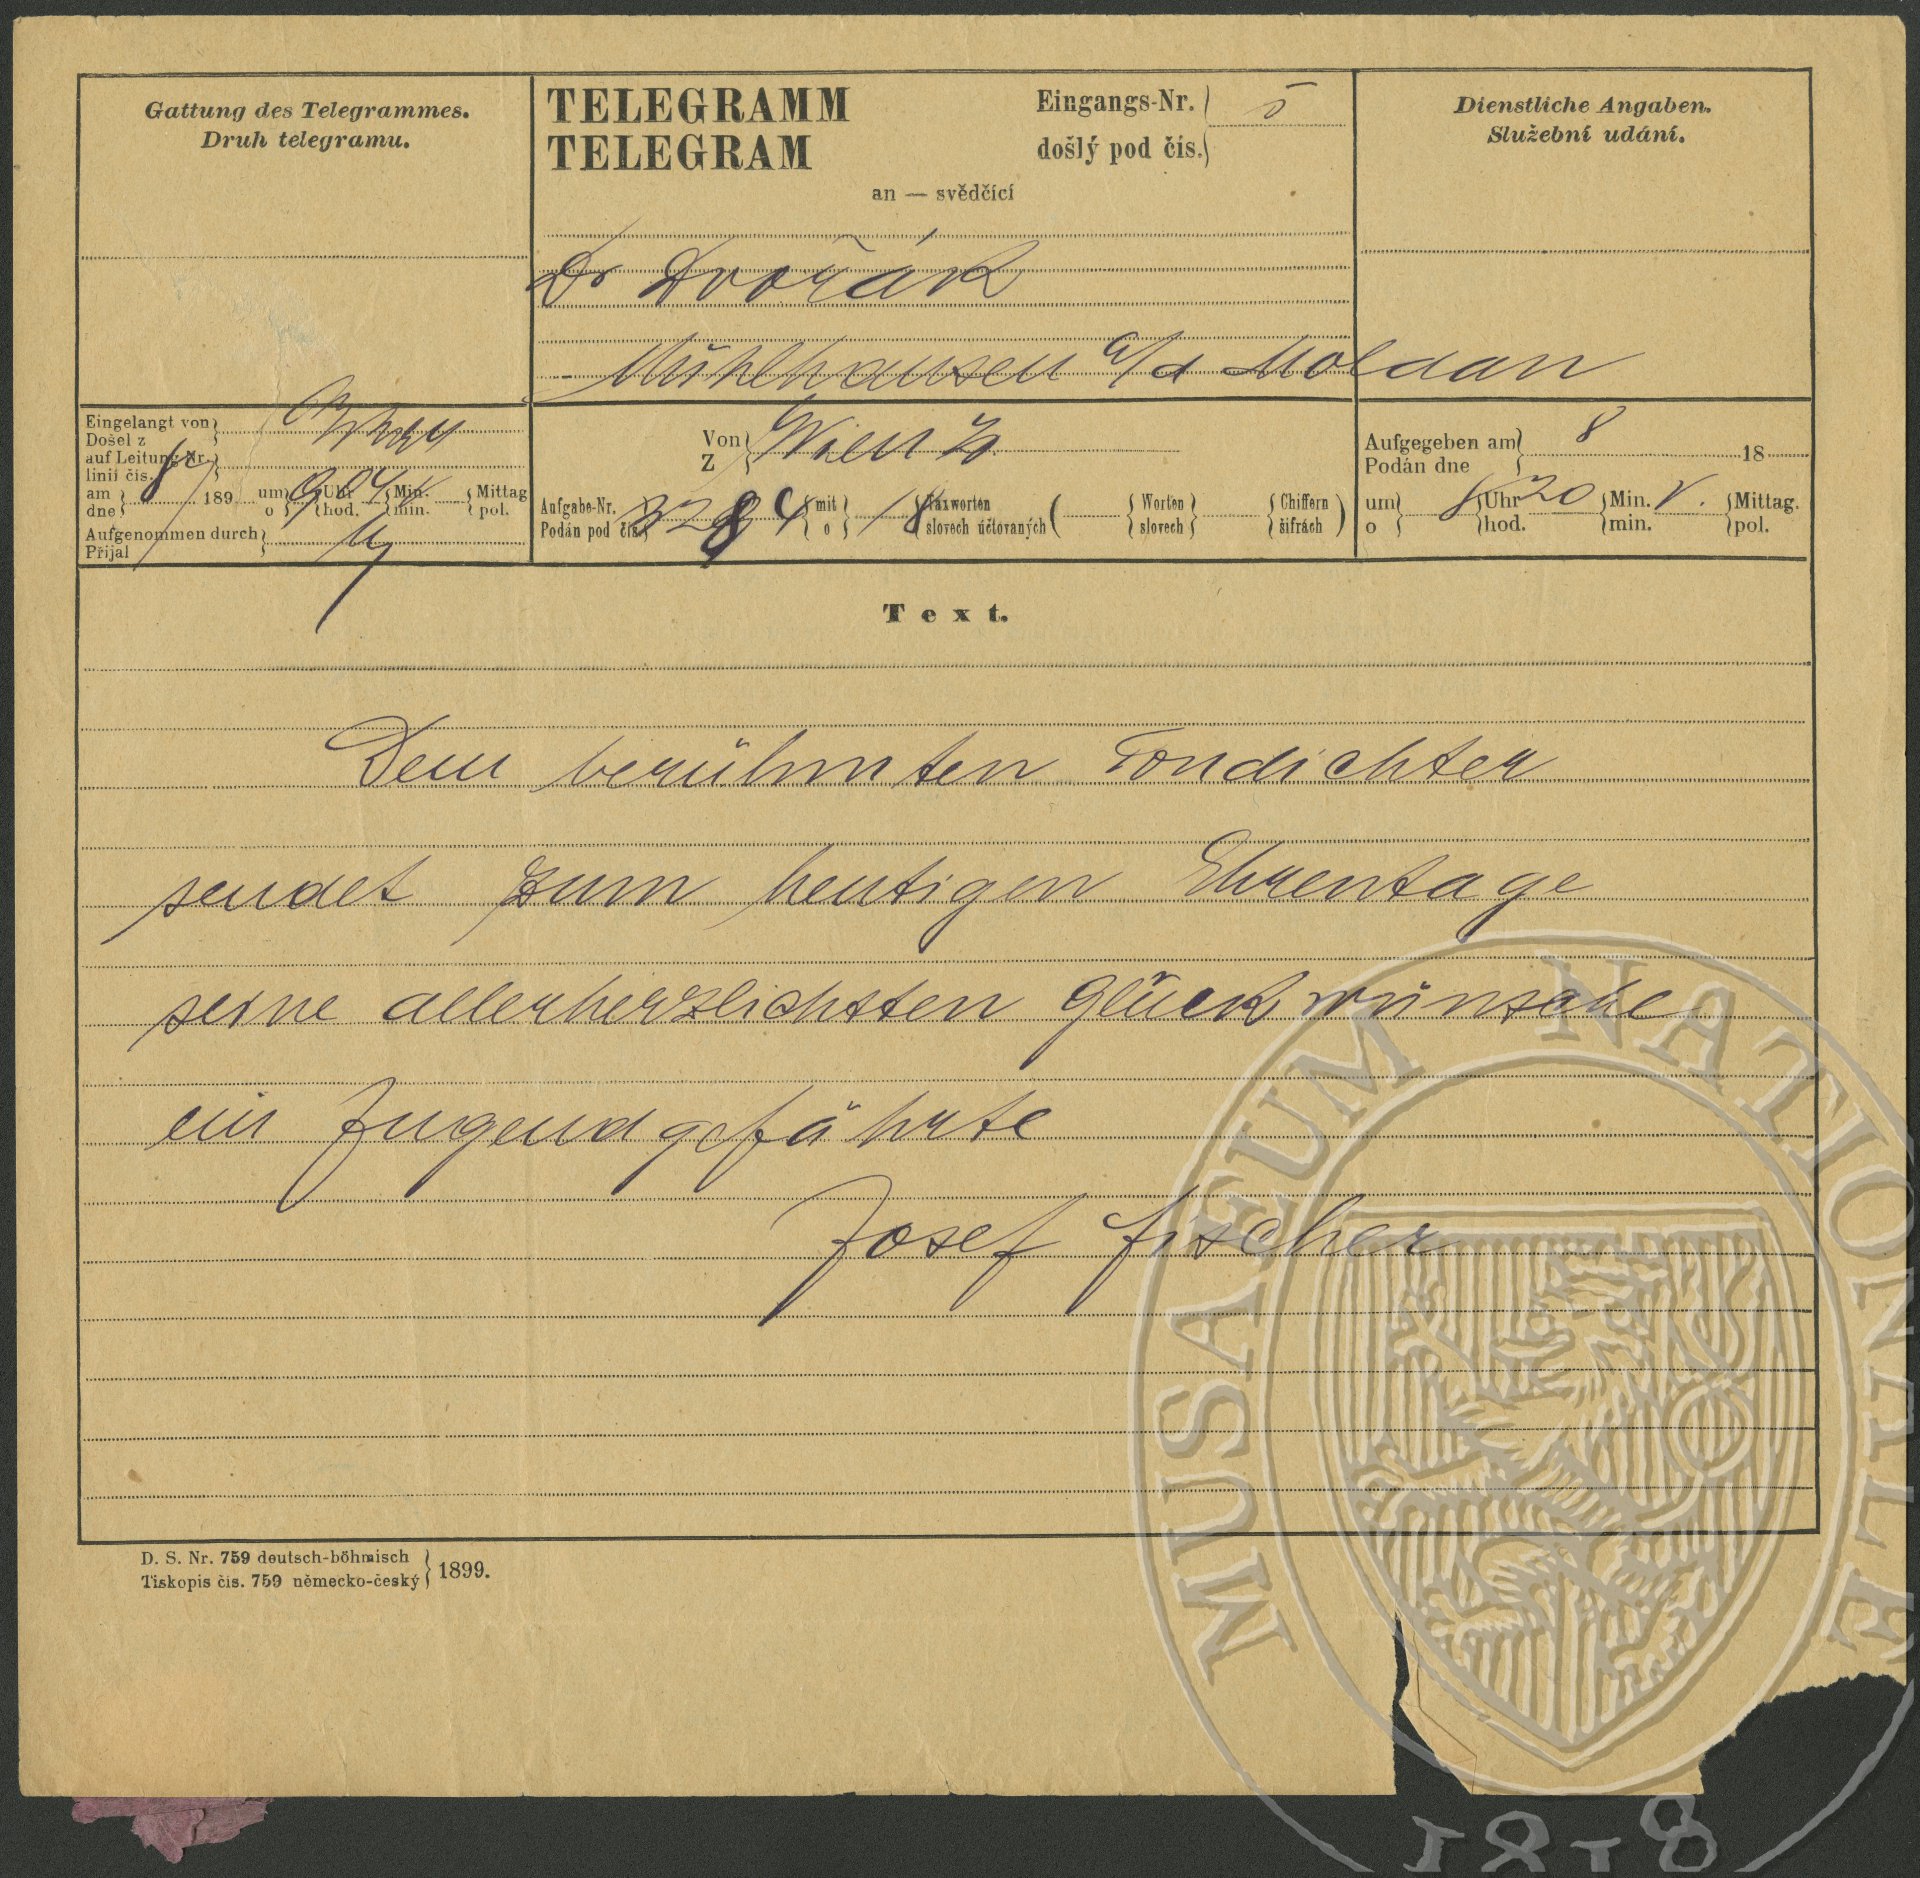 Gattung des Telegrammes.
Druh telegramu.
TELEGRAMM
TELEGRAM
Eingangs-Nr.
došlý pod čís.
5
an — svědčící
Dienstliche Angaben.
Služební udání.
Dr Dvořák
Mühlhausen a/d Moldau
Eingelangt von
Došel z
auf Leitung Nr.
linii čís.
am 8/9 189 um 9 Uhr Min. Mittag
dne o hod. min. pol.
Aufgenommen durch
Přijal
Von Wien
Z
Aufgabe-Nr. mit 18 Taxworten ( Worten Chiffern )
Podán pod čís. o slovech účtovaných slovech šifrách
Aufgegeben am 8 18
Podán dne
um 8 Uhr 20 Min. V. Mittag.
o hod. min. pol.
Text.
Dem berühmten Tondichter
sendet zum heutigen Ehrentage
seine allerherzlichsten Glückwünsche
ein Jugendgefährte
Josef Fischer
D. S. Nr. 759 deutsch-böhmisch
Tiskopis čís. 759 německo-český
1899.
MUSAEUM NATIONALE
1818